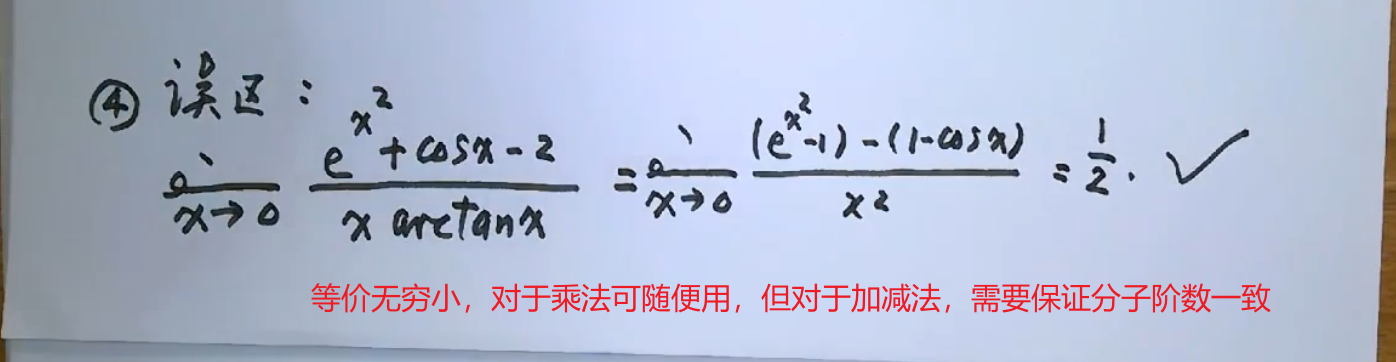 ④ 误区：
lim x→0 (e^{x^2}+cosx-2)/(x arctanx) = lim x→0 ((e^{x^2}-1)-(1-cosx))/(x^2) = 1/2. ✓
等价无穷小，对于乘法可随便用，但对于加减法，需要保证分子阶数一致